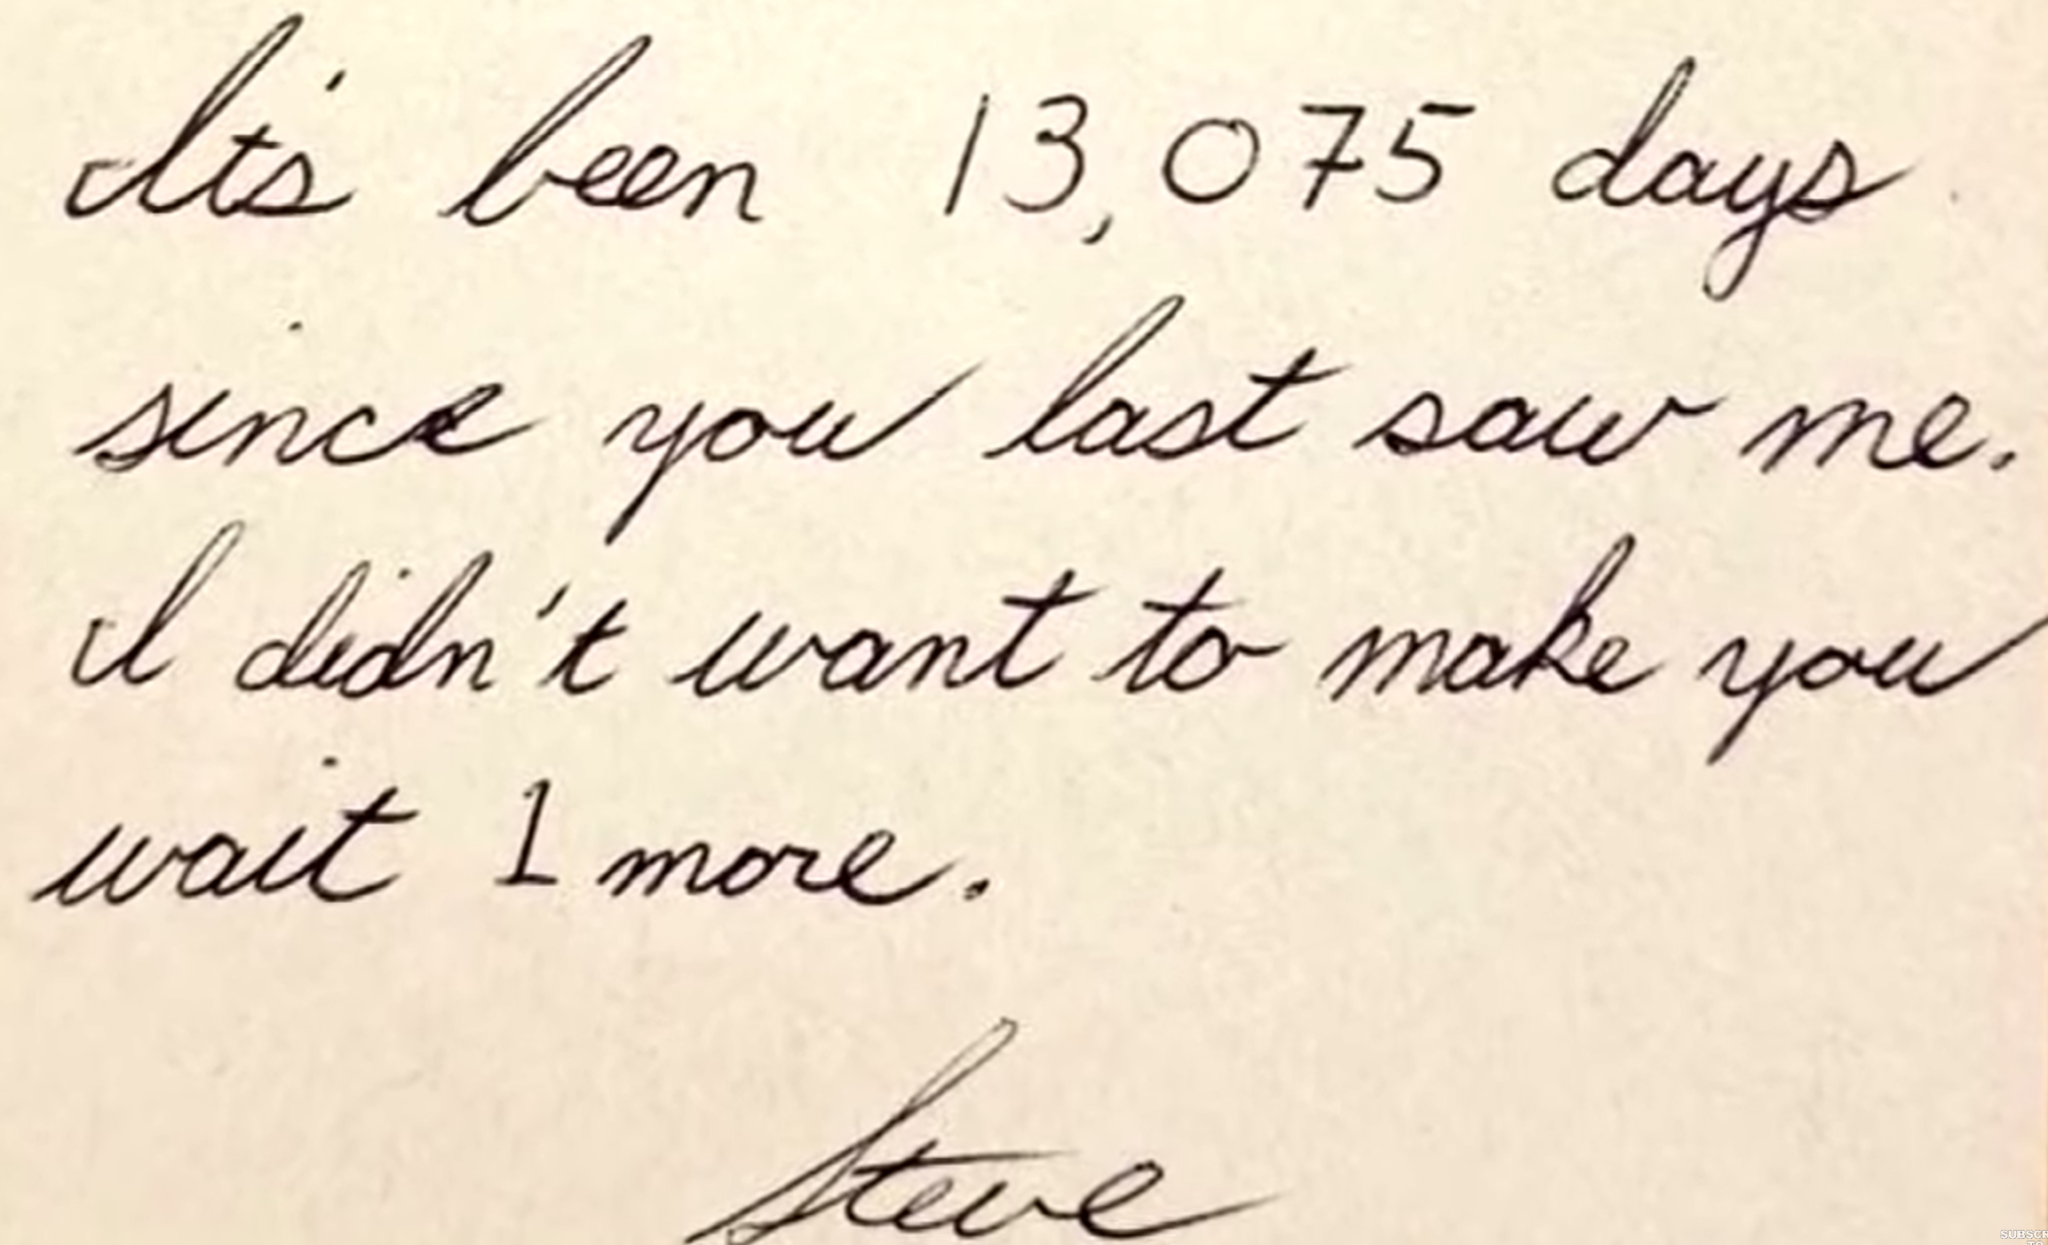 It's been 13,075 days
since you last saw me.
I didn't want to make you
wait 1 more.
Steve